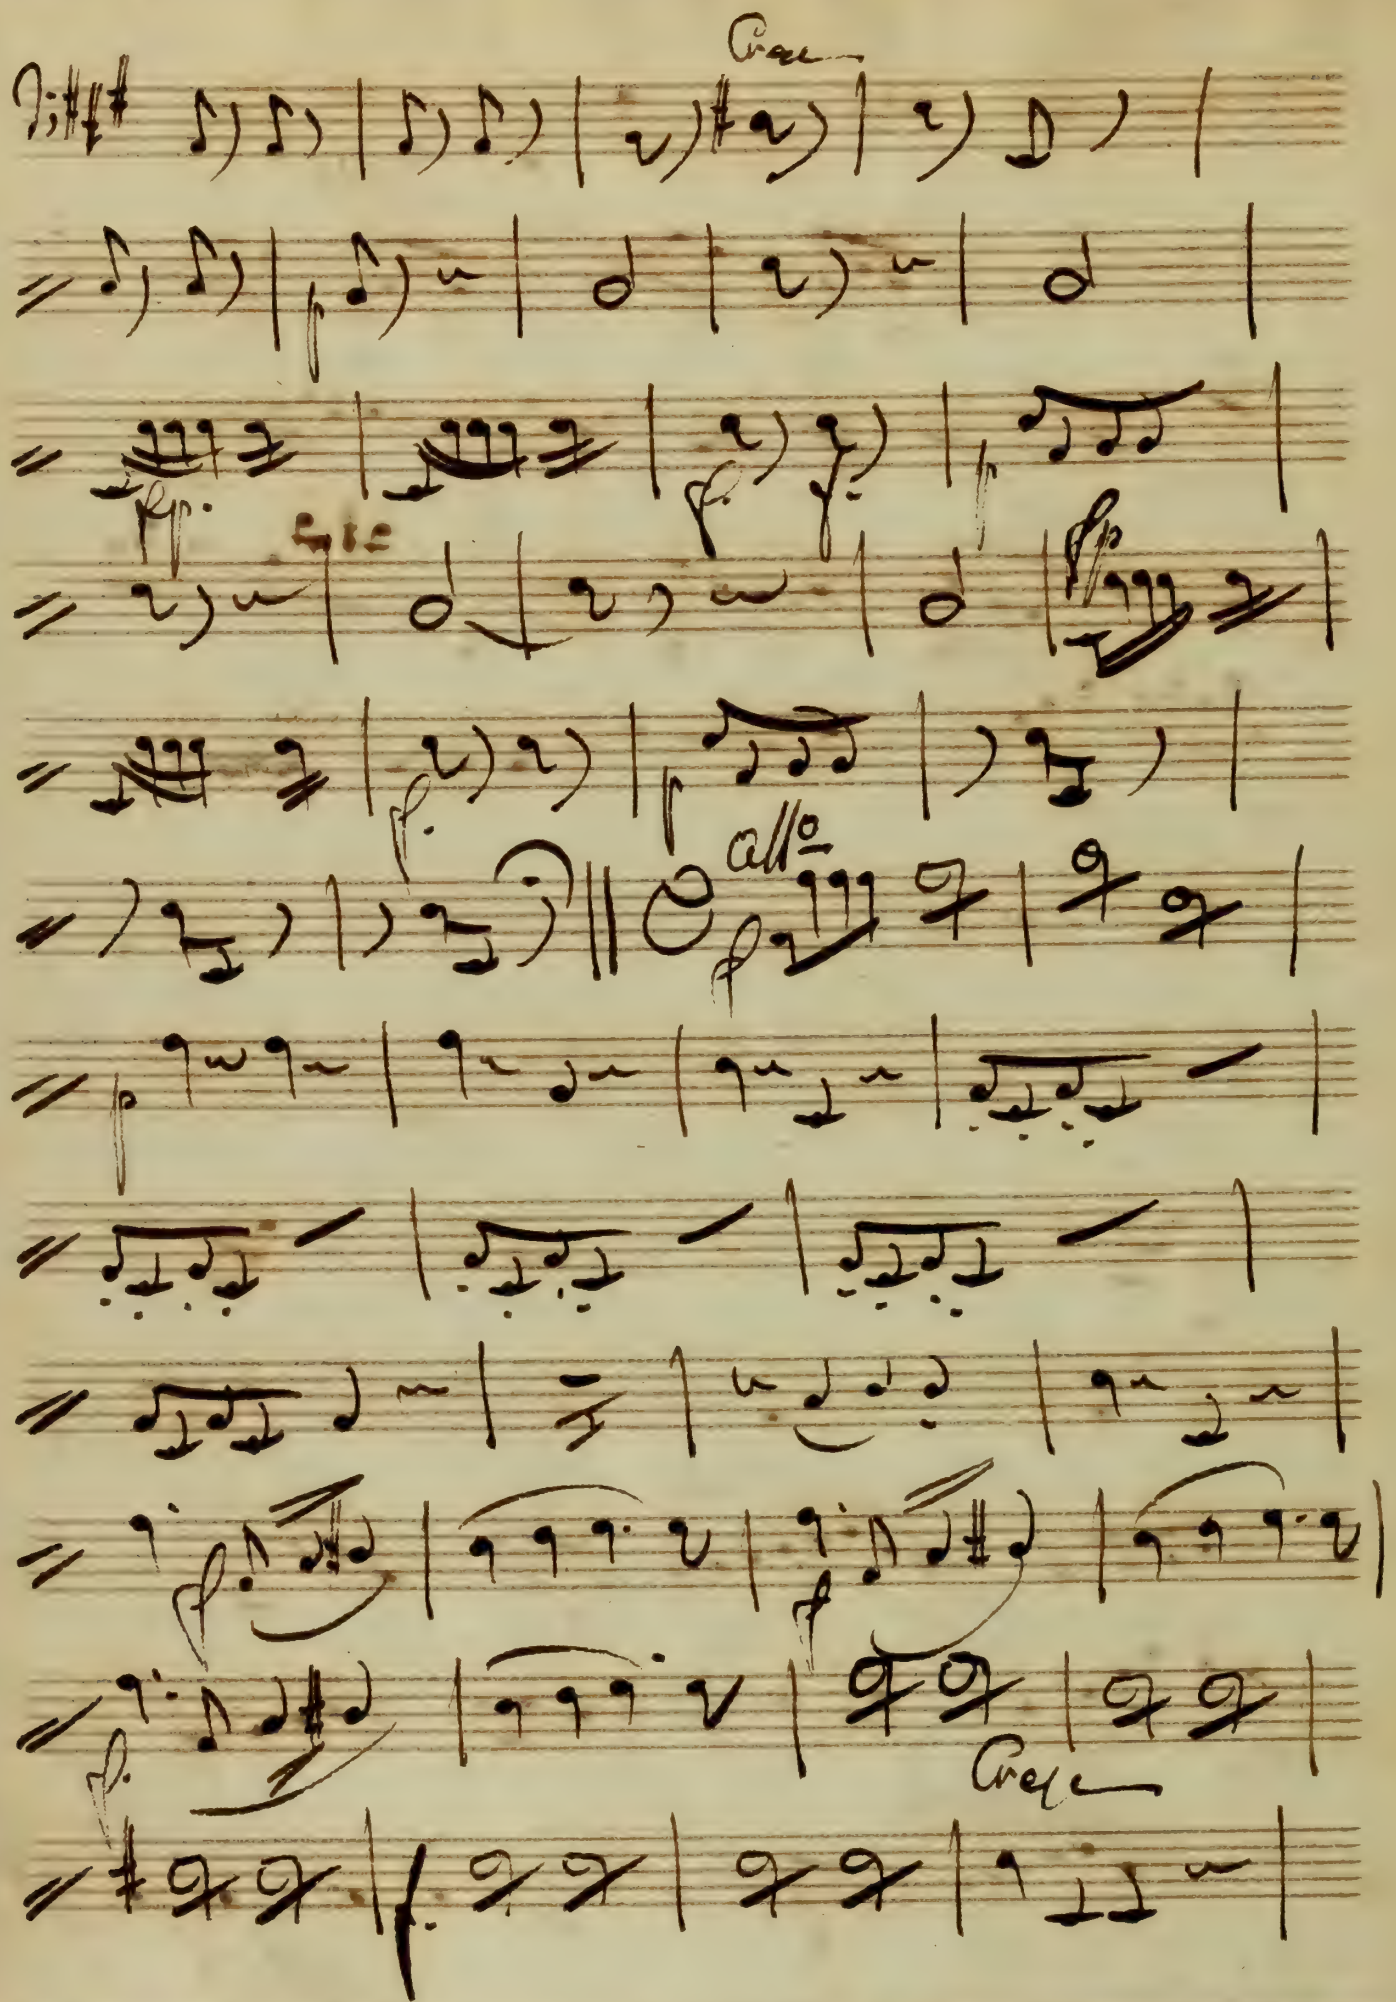 Cresc
p
fp. f. f. p
fp
f. p
allo
f
p
f f
f.
Cresc
f.